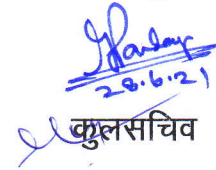 28.6.21
कुलसचिव